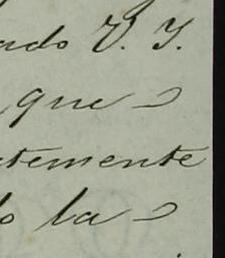 ado V. I.
que
temente
la